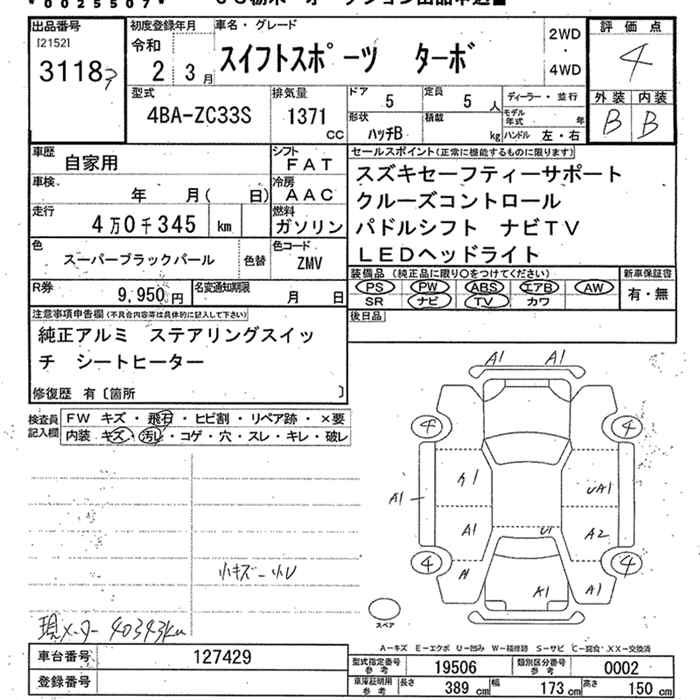 *0025507*
出品番号
[2152]
3118
初度登録年月
令和
2 3月
車名・グレード
スイフトスポーツ ターボ
2WD
・
4WD
評価点
4
外装 内装
B B
型式
4BA-ZC33S
排気量
1371
CC
ドア
5
定員
5 人
形状
ハッチB
積載
kg
ディーラー・並行
モデル年式 年
ハンドル 左・右
車歴
自家用
シフト
FAT
車検
年 月( 日)
冷房
AAC
走行
4万0千345 km
燃料
ガソリン
色
スーパーブラックパール
色替
色コード
ZMV
R券
9,950円
名変通知期限
月 日
セールスポイント(正常に機能するものに限ります)
スズキセーフティーサポート
クルーズコントロール
パドルシフト ナビTV
LEDヘッドライト
装備品(純正品に限り○をつけてください)
PS PW ABS エアB AW
SR ナビ TV カワ
新車保証書
有・無
後日品
注意事項申告欄(不具合内容等は具体的に記入して下さい)
純正アルミ ステアリングスイッ
チ シートヒーター
修復歴 有〔箇所 〕
検査員
記入欄
FW キズ・飛石・ヒビ割・リペア跡・×要
内装 キズ・汚レ・コゲ・穴・スレ・キレ・破レ
小キズ-小U
現メーター 40343km
A1 A1
4 4
A1
A1
UA1
A1
U1
A2
4 4
A1
A1
A1
スペア
A-キズ E-エクボ U-凹み W-補修跡 S-サビ C-腐食 XX-交換済
車台番号
127429
登録番号
型式指定番号
参考
19506
類別区分番号
参考
0002
車庫証明用
参考
長さ
389 cm
幅
173 cm
高さ
150 cm